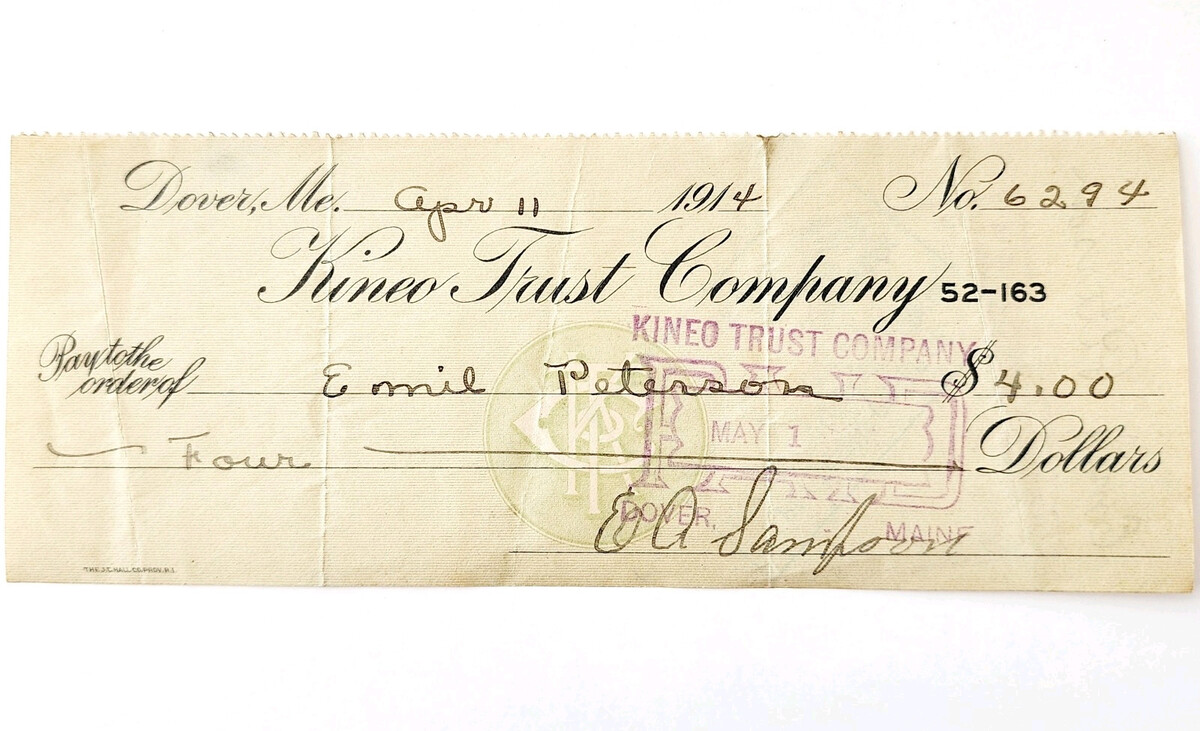 Dover, Me. Apr 11 1914 No. 6294
Kineo Trust Company 52-163
KINEO TRUST COMPANY
Pay to the order of Emil Peterson $ 4.00
PAID
MAY 1
Four Dollars
DOVER, MAINE
E A Sampson
THE J.C. HALL CO. PROV. R.I.